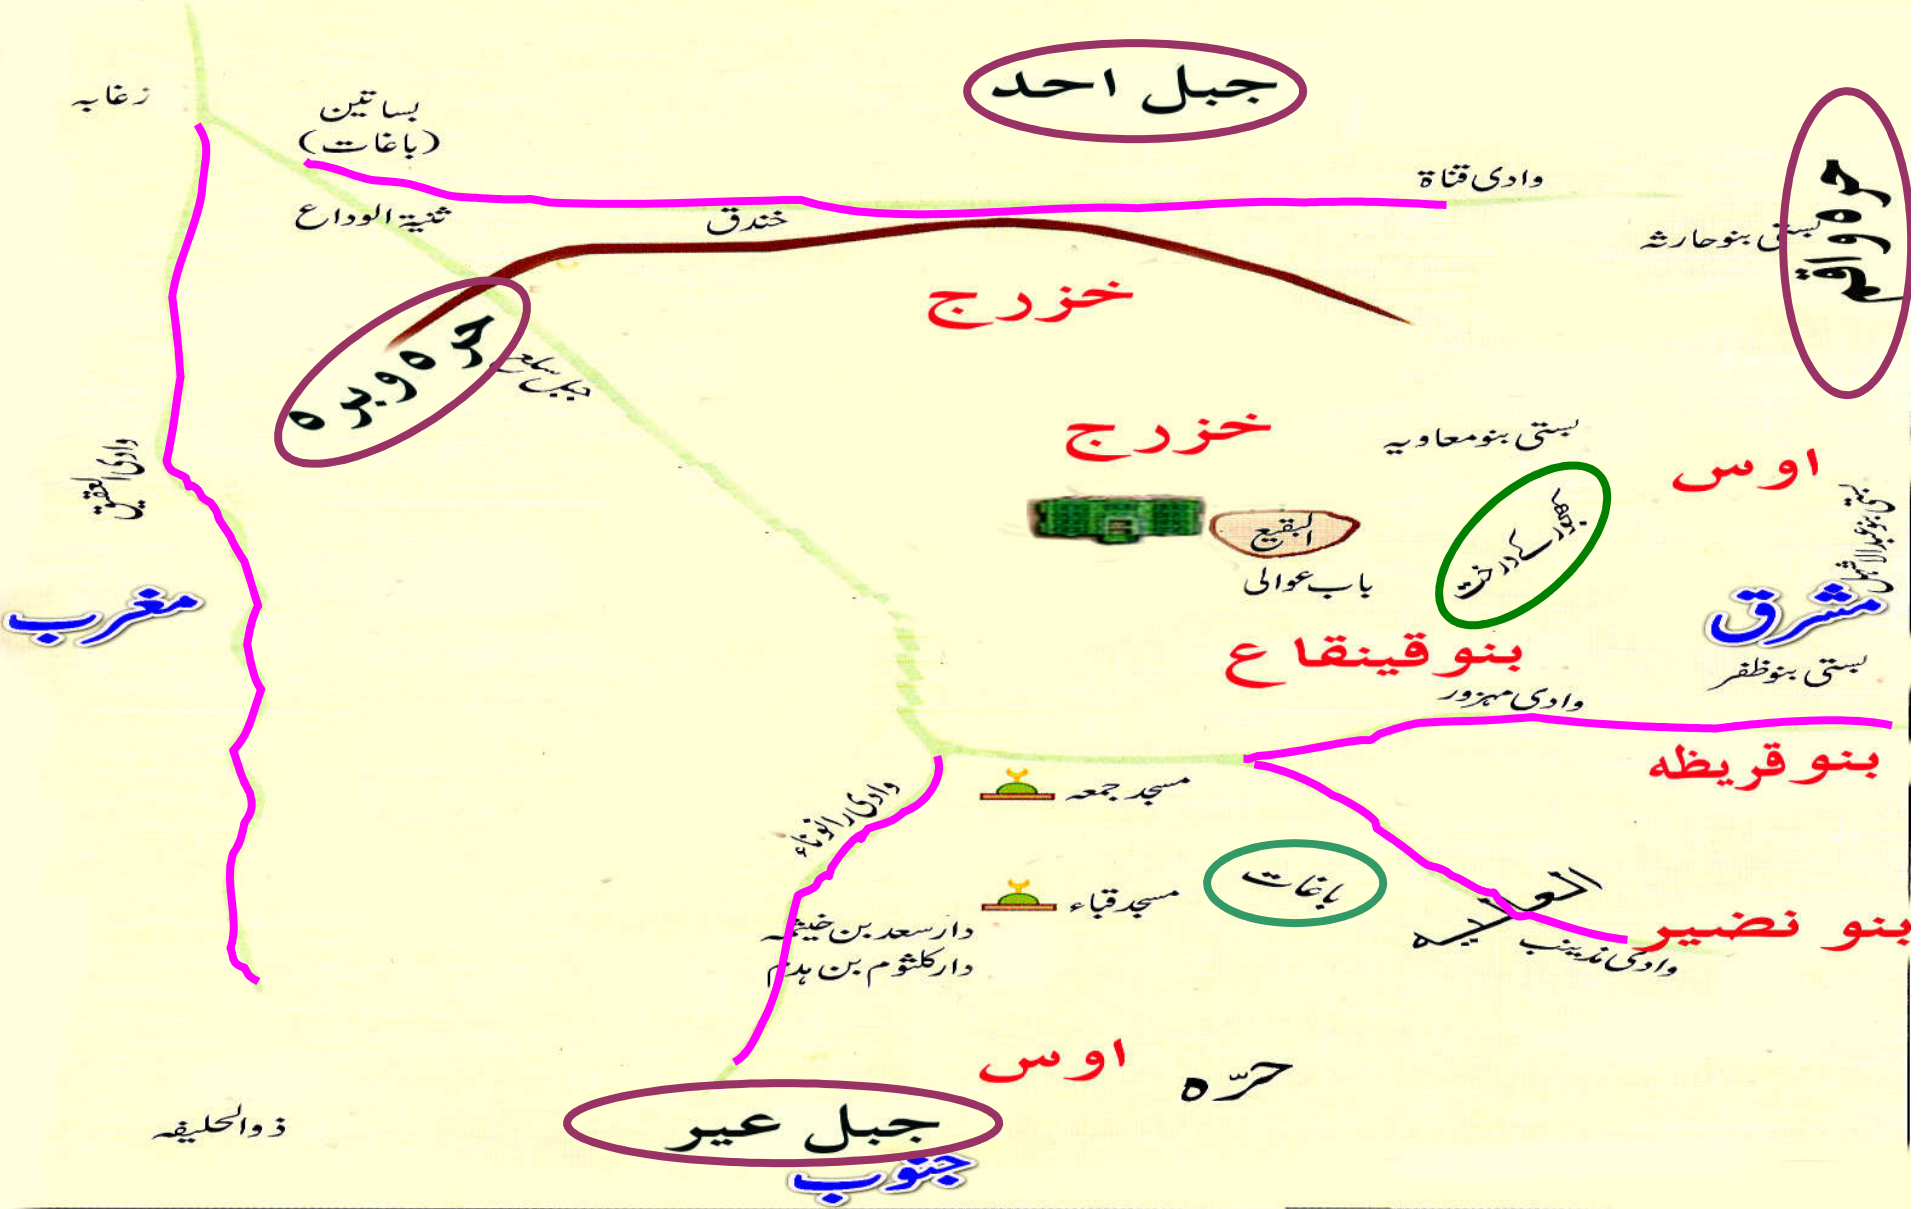 جبل احد
زغابہ
بساتین
(باغات)
وادی قناۃ
حرہ واقم
ثنیۃ الوداع
خندق
بستی بنو حارثہ
خزرج
حرہ وبرہ
جبل سلع
خزرج
بستی بنو معاویہ
اوس
وادی العقیق
البقیع
کھجور کے درخت
بستی بنو عبد الاشہل
باب عوالی
مغرب
مشرق
بنو قینقاع
بستی بنو ظفر
وادی مہزور
بنو قریظہ
مسجد جمعہ
وادی رانوناء
باغات
العوالیہ
مسجد قباء
بنو نضیر
دار سعد بن خیثمہ
وادی مذینب
دار کلثوم بن ہدم
اوس
حرّہ
ذوالحلیفہ
جبل عیر
جنوب